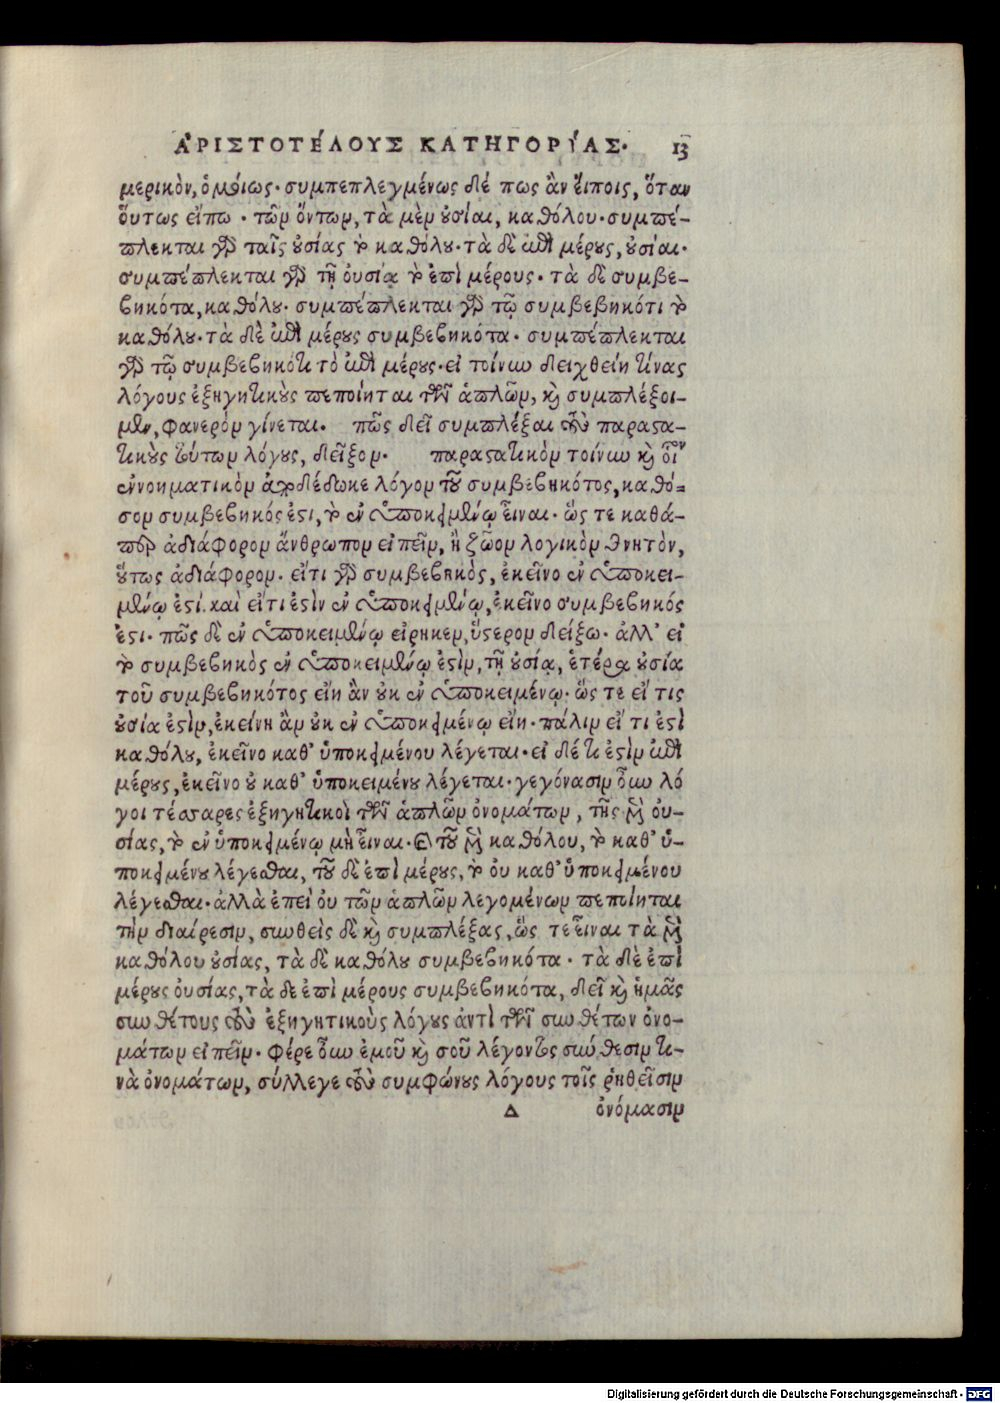 ΑΡΙΣΤΟΤΕΛΟΥΣ ΚΑΤΗΓΟΡΙΑΣ· 13
μερικὸν, ὁμοίως· συμπεπλεγμένως δέ πως ἂν εἴποις, ὅταν
οὕτως εἴπω · τῶν ὄντων, τὰ μὲν οὐσίαι, καθόλου· συμπέ-
πλεκται γὰρ ταῖς οὐσίαις τὸ καθόλου· τὰ δὲ ἐπὶ μέρους, οὐσίαι·
συμπέπλεκται γὰρ τῇ οὐσίᾳ τὸ ἐπὶ μέρους· τὰ δὲ συμβε-
βηκότα, καθόλου· συμπέπλεκται γὰρ τῷ συμβεβηκότι τὸ
καθόλου· τὰ δὲ ἐπὶ μέρους συμβεβηκότα· συμπέπλεκται
γὰρ τῷ συμβεβηκότι τὸ ἐπὶ μέρους· εἰ τοίνυν δειχθείη τίνας
λόγους ἐξηγητικοὺς πεποίηται τῶν ἁπλῶν, καὶ συμπλέξοι-
μεν, φανερὸν γίνεται. πῶς δεῖ συμπλέξαι τοὺς παραστα-
τικοὺς τούτων λόγους, δεῖξον· παραστατικὸν τοίνυν καὶ οἷον
ἐννοηματικὸν ἀποδέδωκε λόγον τοῦ συμβεβηκότος, καθό-
σον συμβεβηκός ἐστι, τὸ ἐν ὑποκειμένῳ εἶναι· ὥς τε καθά-
περ ἀδιάφορον ἄνθρωπον εἰπεῖν, ἢ ζῶον λογικὸν θνητὸν,
οὕτως ἀδιάφορον· εἴτι γὰρ συμβεβηκὸς, ἐκεῖνο ἐν ὑποκει-
μένῳ ἐστί. καὶ εἴτι ἐστὶν ἐν ὑποκειμένῳ, ἐκεῖνο συμβεβηκός
ἐστι· πῶς δὲ ἐν ὑποκειμένῳ εἴρηκεν, ὕστερον δείξω· ἀλλ' εἰ
τὸ συμβεβηκὸς ἐν ὑποκειμένῳ ἐστὶν, τῇ οὐσίᾳ, ἑτέρα οὐσία
τοῦ συμβεβηκότος εἴη ἂν οὐκ ἐν ὑποκειμένῳ· ὥς τε εἴ τις
οὐσία ἐστὶν, ἐκείνη ἂν οὐκ ἐν ὑποκειμένῳ εἴη· πάλιν εἴ τι ἐστὶ
καθόλου, ἐκεῖνο καθ' ὑποκειμένου λέγεται· εἰ δέ τι ἐστὶν ἐπὶ
μέρους, ἐκεῖνο οὐ καθ' ὑποκειμένου λέγεται· γεγόνασιν οὖν λό
γοι τέσσαρες ἐξηγητικοὶ τῶν ἁπλῶν ὀνομάτων, τῆς μὲν οὐ-
σίας, τὸ ἐν ὑποκειμένῳ μὴ εἶναι· καὶ τοῦ μὲν καθόλου, τὸ καθ' ὑ-
ποκειμένου λέγεσθαι, τοῦ δὲ ἐπὶ μέρους, τὸ οὐ καθ' ὑποκειμένου
λέγεσθαι· ἀλλὰ ἐπεὶ οὐ τῶν ἁπλῶν λεγομένων πεποίηται
τὴν διαίρεσιν, συνθεὶς δὲ καὶ συμπλέξας, ὥς τε εἶναι τὰ μὲν
καθόλου οὐσίας, τὰ δὲ καθόλου συμβεβηκότα· τὰ δὲ ἐπὶ
μέρους οὐσίας, τὰ δε ἐπὶ μέρους συμβεβηκότα, δεῖ καὶ ἡμᾶς
συνθέτους τοὺς ἐξηγητικοὺς λόγους ἀντὶ τῶν συνθέτων ὀνο-
μάτων εἰπεῖν· φέρε οὖν ἐμοῦ καὶ σοῦ λέγοντος σύνθεσιν τι-
νὰ ὀνομάτων, σύλλεγε τοὺς συμφώνους λόγους τοῖς ῥηθεῖσιν
Δ ὀνόμασιν
Digitalisierung gefördert durch die Deutsche Forschungsgemeinschaft - DFG